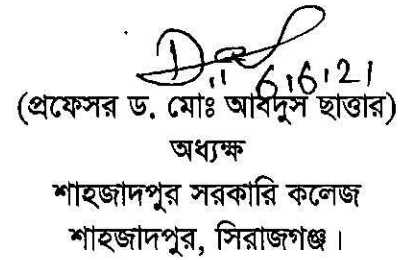 6.6.21
(প্রফেসর ড. মোঃ আবদুস ছাত্তার)
অধ্যক্ষ
শাহজাদপুর সরকারি কলেজ
শাহজাদপুর, সিরাজগঞ্জ।